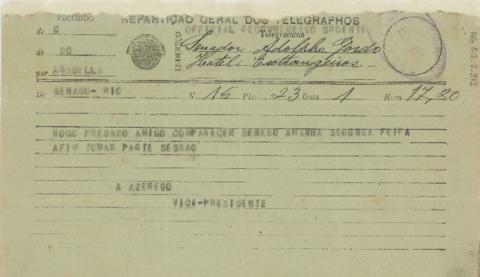 RECEBIDO
REPARTIÇÃO GERAL DOS TELEGRAPHOS
de C
OFFICIAL RECOMMENDADO URGENTE
Telegramma
de 20
Senador Adolpho Gordo
por ARABELLA
Hotel Extrangeiros
ENDEREÇO
De SENADO- RIO
N. 16 Plc. 23 Data 1 Hora 17,20
ROGO PRESADO AMIGO COMPARECER SENADO AMANHA SEGUNDA FEIRA
AFIM TOMAR PARTE SESSAO
A AZEREDO
VICE-PRESIDENTE
AG 6.2.2.312